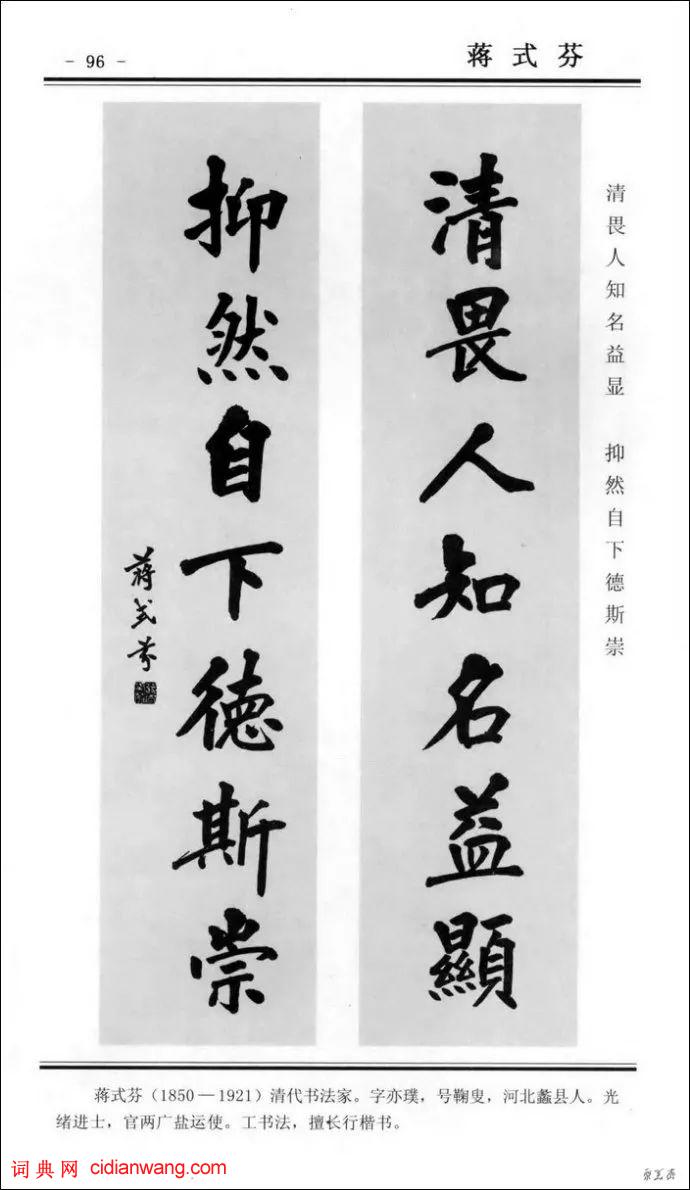 - 96 -
蒋式芬
清畏人知名益显 抑然自下德斯崇
清畏人知名益顯
抑然自下德斯崇
蒋式芬
蒋式芬（1850—1921）清代书法家。字亦璞，号鞠叟，河北蠡县人。光
绪进士，官两广盐运使。工书法，擅长行楷书。
词典网 cidianwang.com